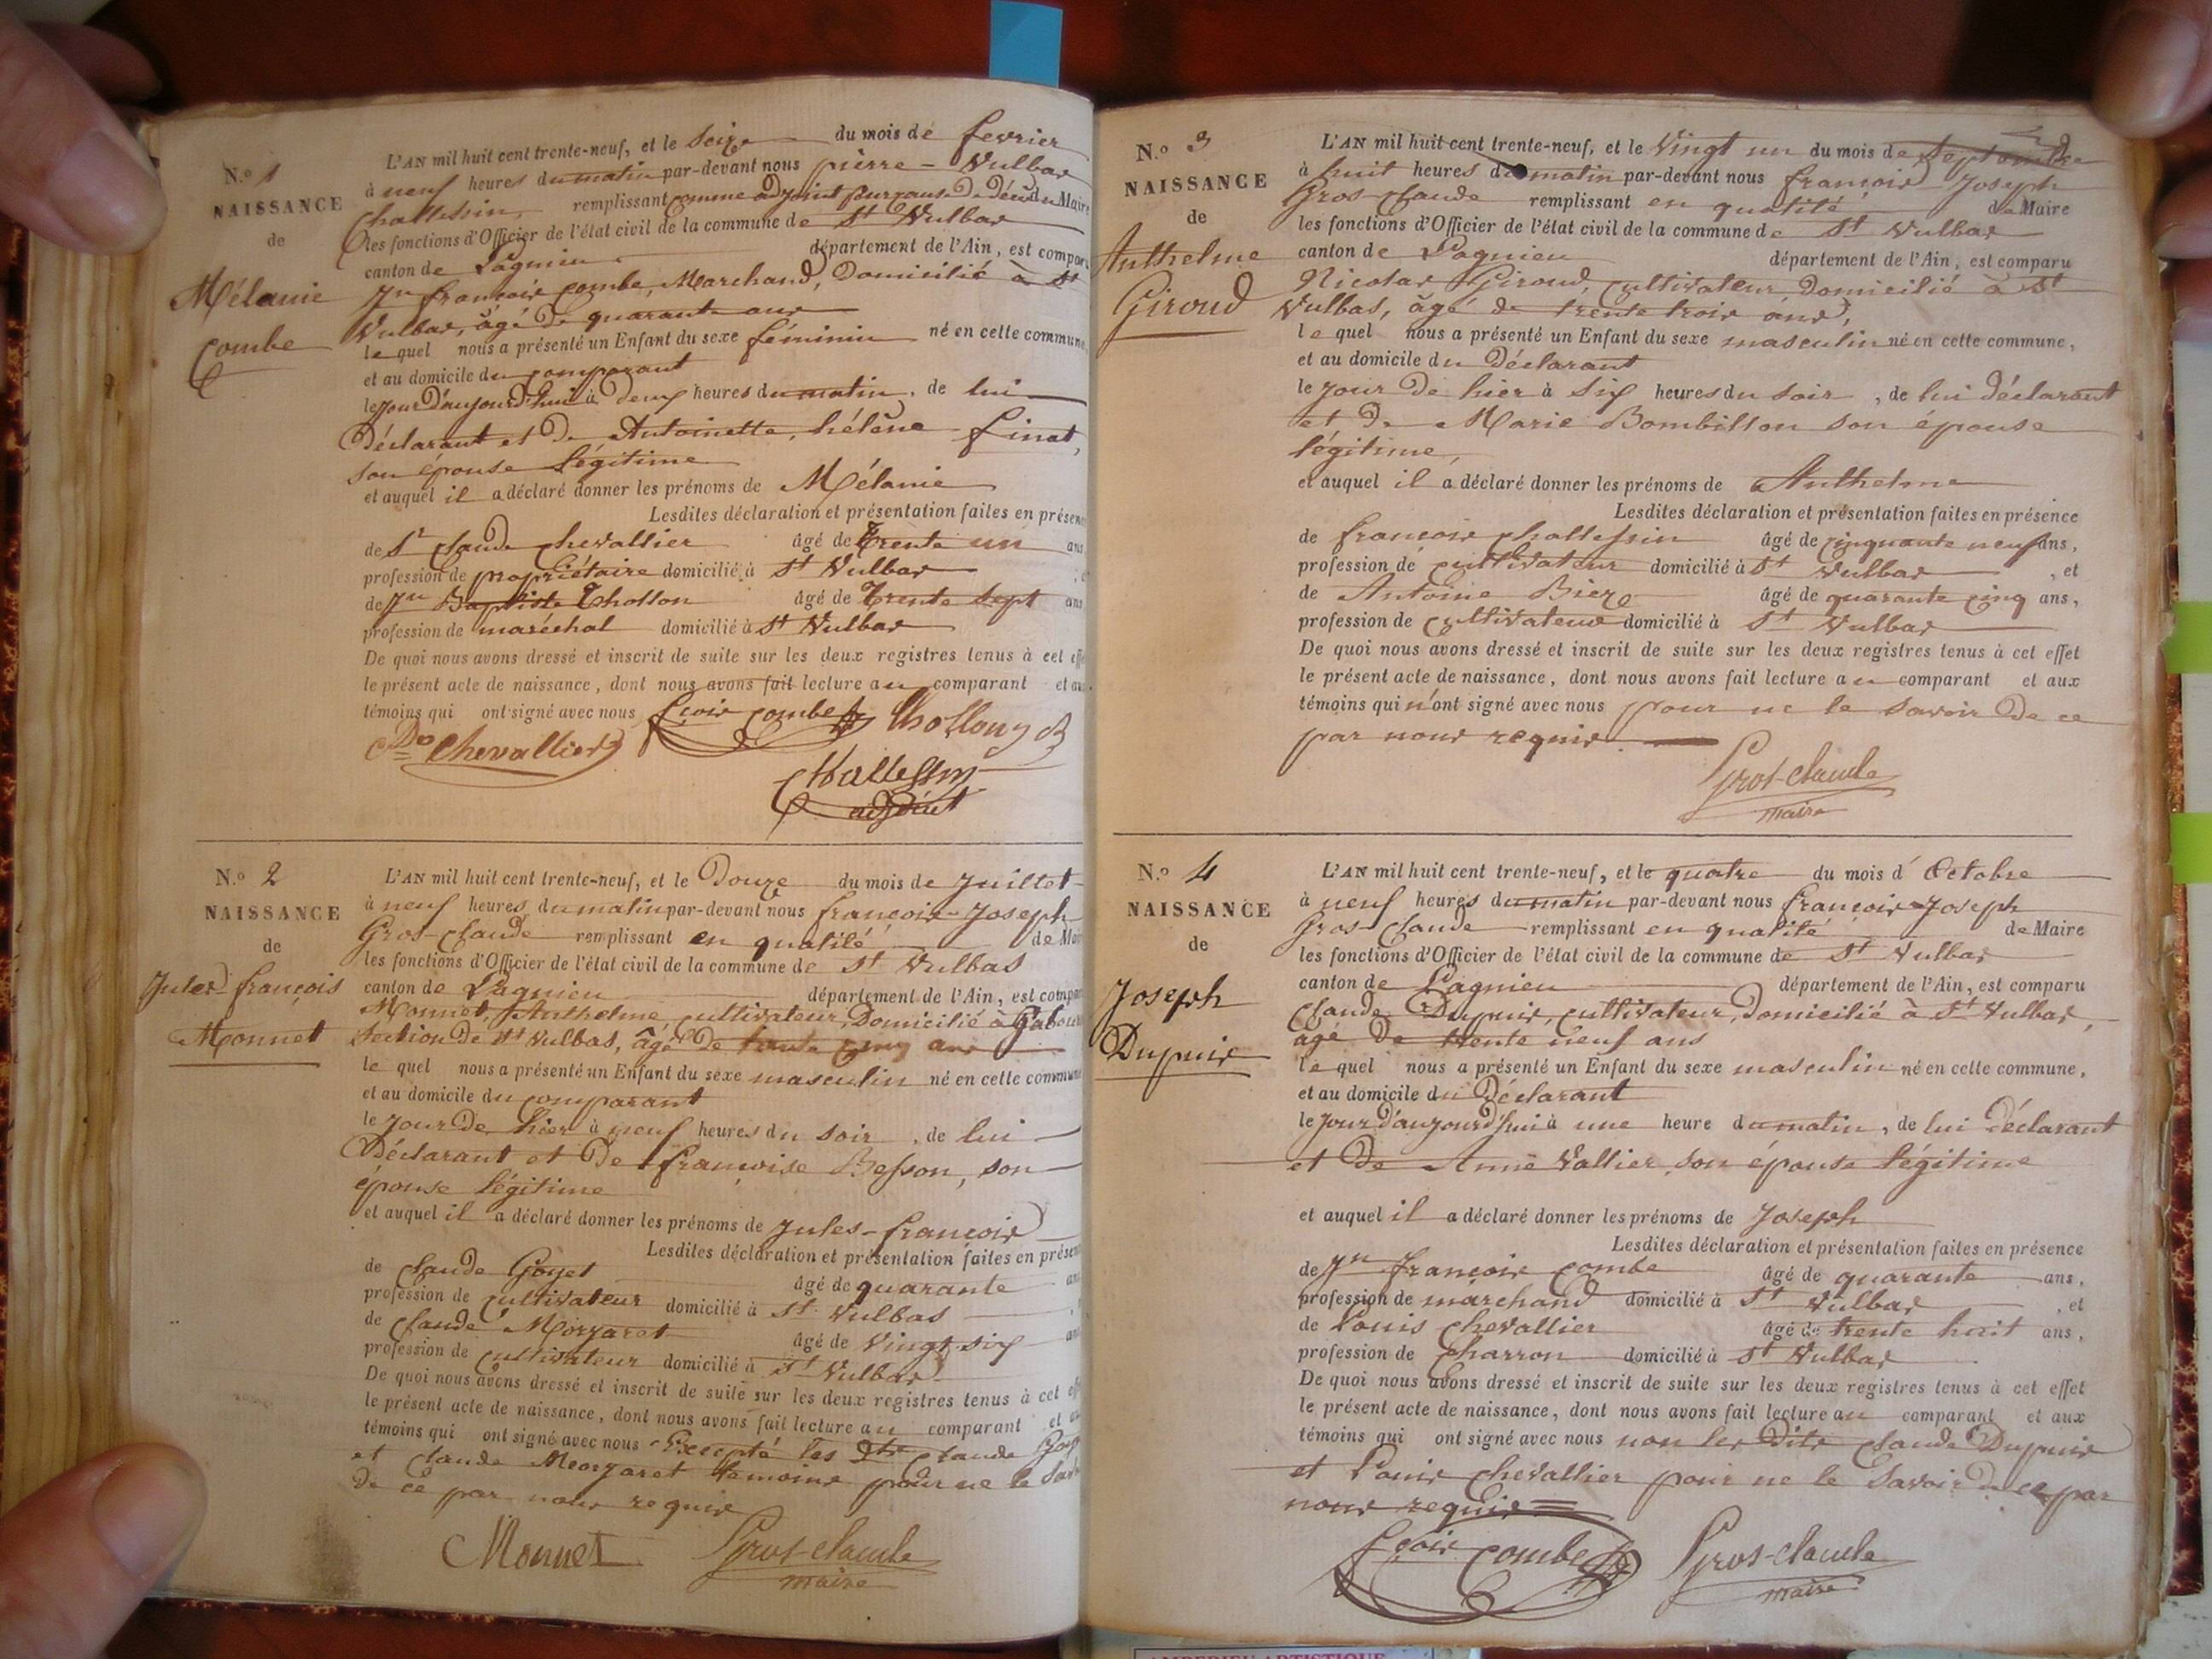 N.º 1
NAISSANCE
de
Mélanie
Combe
L'AN mil huit cent trente-neuf, et le seize du mois de fevrier
à neuf heures du matin par-devant nous pierre - Vulbas
Challessin, remplissant comme adjoint pour cause de décès du Maire
les fonctions d'Officier de l'état civil de la commune de St Vulbas
canton de Lagnieu département de l'Ain, est comparu
Jn françois Combe, Marchand, Domicilié à St
Vulbas, âgé de quarante ans
le quel nous a présenté un Enfant du sexe féminin né en cette commune,
et au domicile du comparant
le jour d'aujourd'hui à deux heures du matin, de lui
Déclarant et de Antoinette, hélène finat,
son épouse légitime
et auquel il a déclaré donner les prénoms de Mélanie
Lesdites déclaration et présentation faites en présence
de Sr Claude Chevallier âgé de trente un ans
profession de propriétaire domicilié à St Vulbas
de Jn Baptiste Thollon âgé de trente sept ans
profession de maréchal domicilié à St Vulbas
De quoi nous avons dressé et inscrit de suite sur les deux registres tenus à cet effet
le présent acte de naissance, dont nous avons fait lecture au comparant et aux
témoins qui ont signé avec nous
fçois Combe Thollon
Cde Chevallier
Challessin
adjoint
N.º 2
NAISSANCE
de
Jules-françois
Monnet
L'AN mil huit cent trente-neuf, et le Douze du mois de Juillet
à neuf heures du matin par-devant nous françois-Joseph
Gros-Claude remplissant en qualité de Maire
les fonctions d'Officier de l'état civil de la commune de St Vulbas
canton de Lagnieu département de l'Ain, est comparu
Monnet, Anthelme, cultivateur, Domicilié à
Section de St Vulbas, âgé de trente cinq ans
le quel nous a présenté un Enfant du sexe masculin né en cette commune
et au domicile du comparant
le jour de hier à neuf heures du soir, de lui
Déclarant et de françoise Besson, son
épouse légitime
et auquel il a déclaré donner les prénoms de Jules-françois
Lesdites déclaration et présentation faites en présence
de Claude Goyet âgé de quarante ans
profession de cultivateur domicilié à St Vulbas
de Claude Morgaret âgé de vingt six ans
profession de cultivateur domicilié à St Vulbas
De quoi nous avons dressé et inscrit de suite sur les deux registres tenus à cet effet
le présent acte de naissance, dont nous avons fait lecture au comparant et aux
témoins qui ont signé avec nous Excepté les dts Claude Goyet
et Claude Morgaret témoins pour ne le savoir
de ce par nous requis
Monnet Gros-claude
maire
N.º 3
NAISSANCE
de
Anthelme
Giroud
L'AN mil huit cent trente-neuf, et le vingt un du mois de Septembre
à huit heures du matin par-devant nous françois Joseph
Gros-Claude remplissant en qualité de Maire
les fonctions d'Officier de l'état civil de la commune de St Vulbas
canton de Lagnieu département de l'Ain, est comparu
Nicolas Giroud, cultivateur domicilié à St
Vulbas, âgé de trente trois ans,
le quel nous a présenté un Enfant du sexe masculin né en cette commune,
et au domicile du Déclarant
le jour de hier à six heures du soir, de lui déclarant
et de Marie Bombillon son épouse
légitime,
et auquel il a déclaré donner les prénoms de Anthelme
Lesdites déclaration et présentation faites en présence
de françois Challessin âgé de cinquante neuf ans,
profession de cultivateur domicilié à St Vulbas, et
de Antoine âgé de quarante cinq ans,
profession de cultivateur domicilié à St Vulbas
De quoi nous avons dressé et inscrit de suite sur les deux registres tenus à cet effet
le présent acte de naissance, dont nous avons fait lecture au comparant et aux
témoins qui n'ont signé avec nous pour ne le savoir de ce
par nous requis
Gros-claude
maire
N.º 4
NAISSANCE
de
Joseph
Dupuis
L'AN mil huit cent trente-neuf, et le quatre du mois d'Octobre
à neuf heures du matin par-devant nous françois Joseph
Gros-Claude remplissant en qualité de Maire
les fonctions d'Officier de l'état civil de la commune de St Vulbas
canton de Lagnieu département de l'Ain, est comparu
Claude Dupuis, cultivateur, domicilié à St Vulbas,
âgé de trente neuf ans
le quel nous a présenté un Enfant du sexe masculin né en cette commune,
et au domicile du Déclarant
le jour d'aujourd'hui à une heure du matin, de lui déclarant
et de Anne Vallier son épouse légitime
et auquel il a déclaré donner les prénoms de Joseph
Lesdites déclaration et présentation faites en présence
de Jn françois Combe âgé de quarante ans,
profession de marchand domicilié à St Vulbas, et
de Louis Chevallier âgé de trente huit ans,
profession de charron domicilié à St Vulbas
De quoi nous avons dressé et inscrit de suite sur les deux registres tenus à cet effet
le présent acte de naissance, dont nous avons fait lecture au comparant et aux
témoins qui ont signé avec nous non les dits Claude Dupuis
et Louis Chevallier pour ne le savoir de ce par
nous requis
fçois Combe Gros-claude
maire